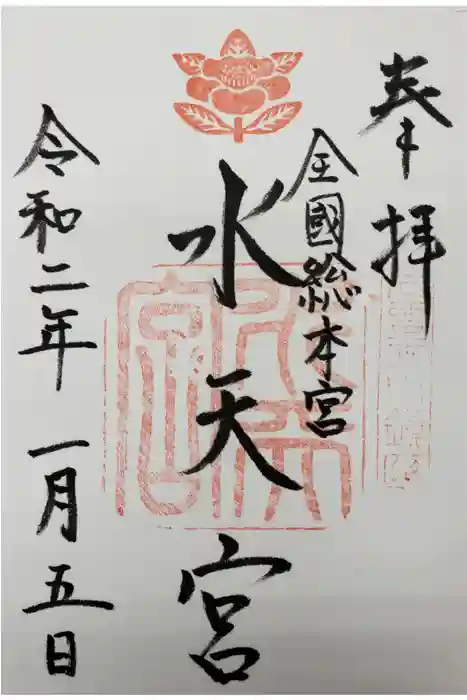 奉拝
全國総本宮
水天宮
令和二年一月五日